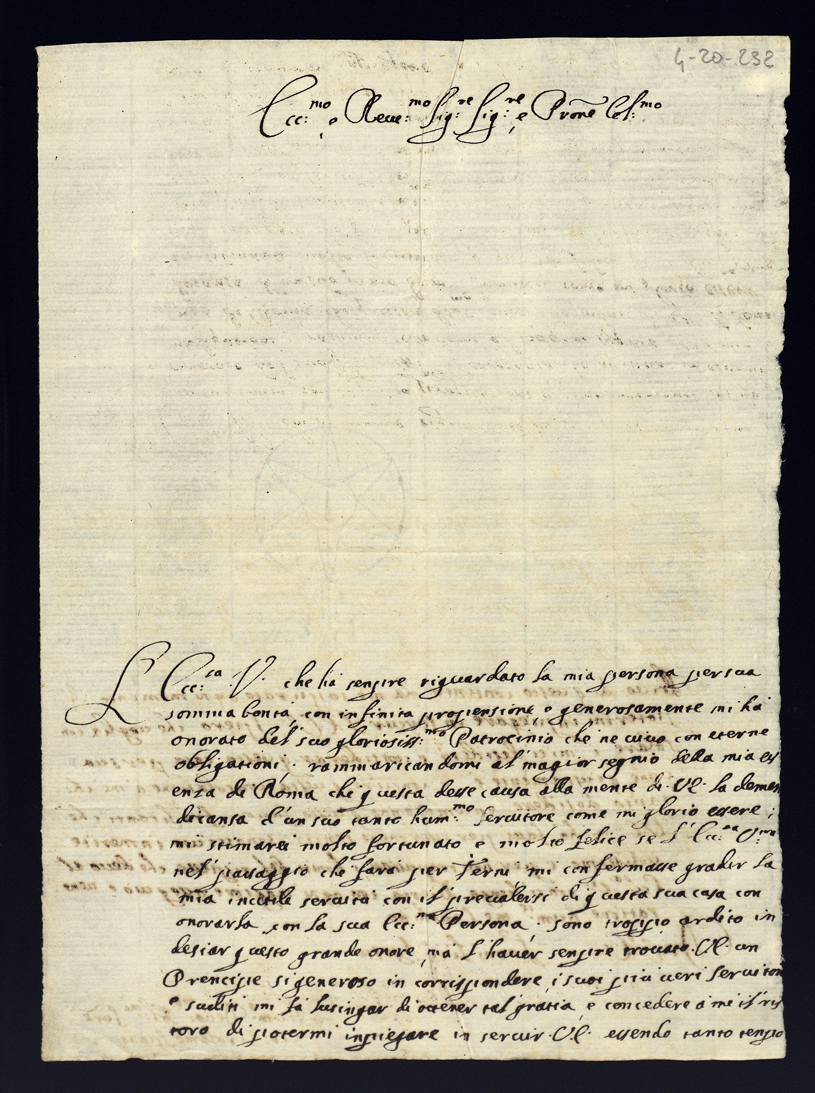 4-20-232
Ecc:mo e Reue:mo Sig:re Sig:re e Prone Col:mo
L' Ecc:za V. che hà sempre riguardato la mia persona per sua
somma bontà, con infinita propensione, e generosamente mi hà
onorato del suo gloriosiss:mo Patrocinio che ne uiuo con eterne
obligationi; rammaricandomi al magior segnio della mia es
enza di Roma che questa desse causa alla mente di V.E. la demen
dicanza d'un suo tanto hum:mo Seruitore come mi glorio essere;
mi stimarei molto fortunato e molto felice se l' Ecc:za V:ra
nel passaggio che farà per Terni mi confermasse gradir la
mia inutile seruitù con il preualersi di questa sua casa con
onorarla con la sua Ecc:ma Persona, sono troppo ardito in
desiar questo grande onore, mà l'hauer sempre trouato V.E. un
Prencipe si generoso in corrispondere i suoi più ueri seruitori
e suditi mi fà lusingar di ottener tal gratia, e concedere à me il ris
toro di potermi inpiegare in seruir V.E. essendo tanto tempo